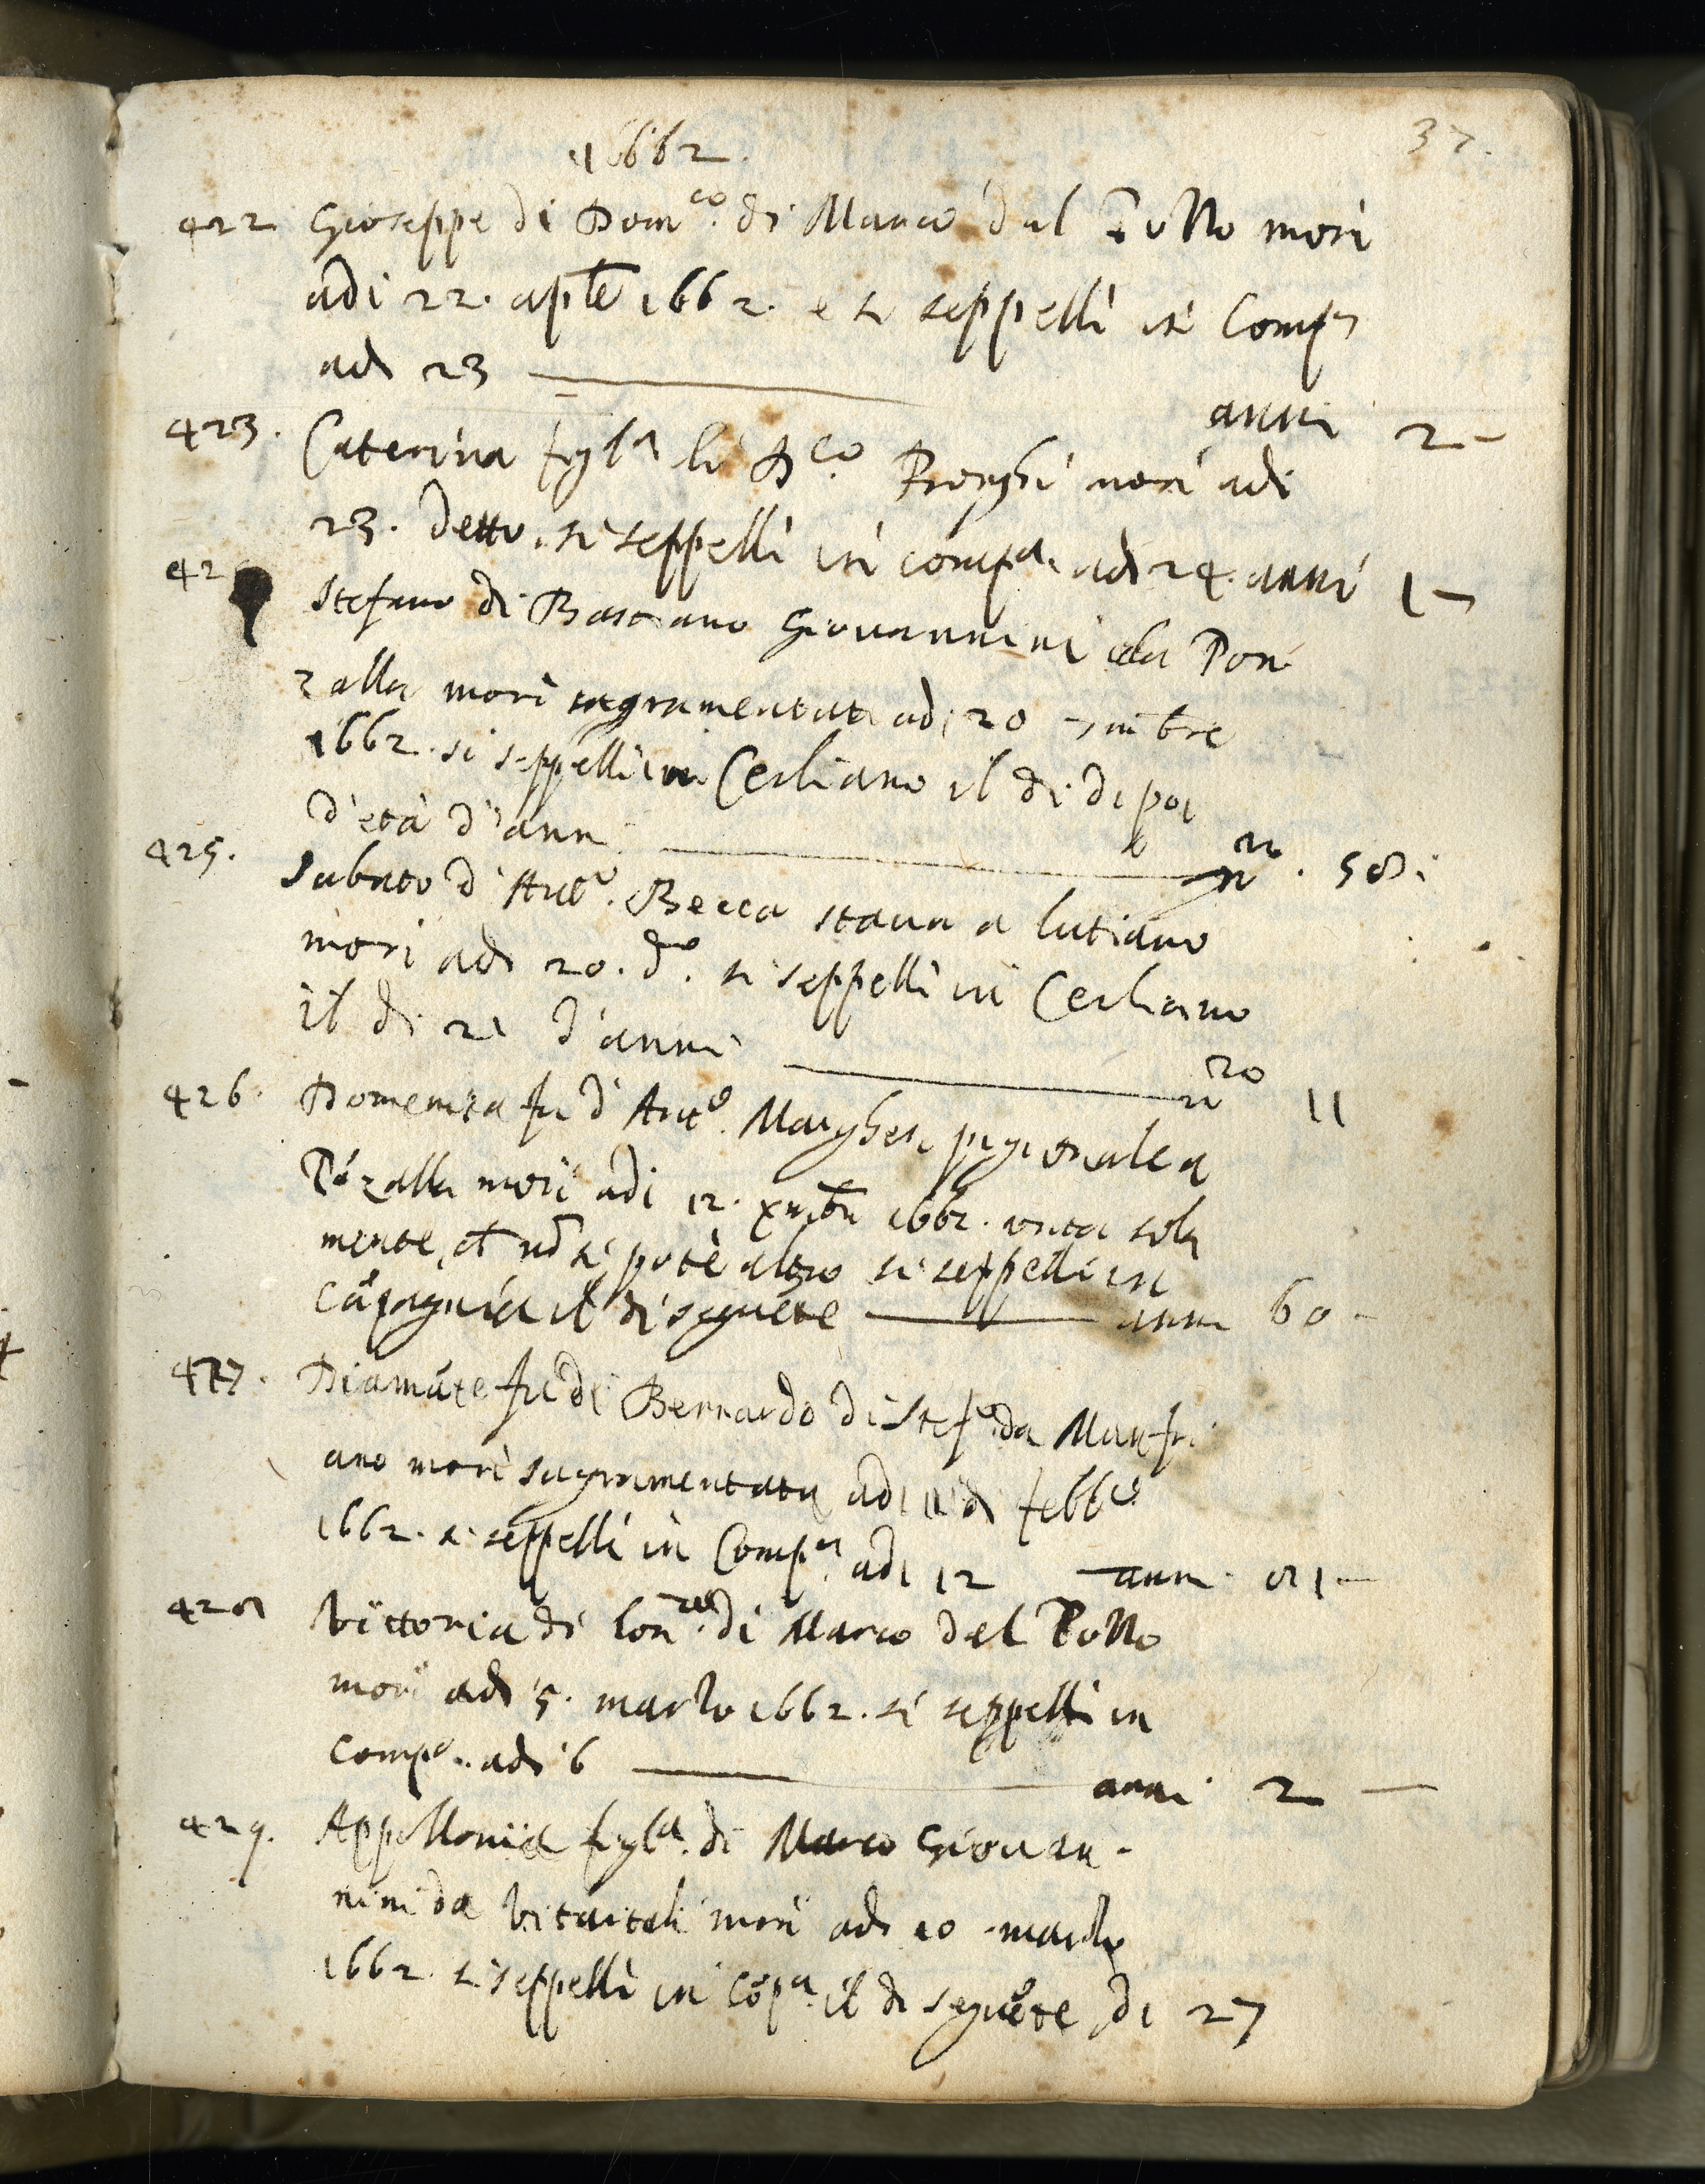 37.
1662.
422 Gioseppe di Dom.co di Marco dal Pozzo morì
adi 22. aple 1662. e si seppellì in Comp.a
adi 23 anni 2-
423. Caterina figl.a di D.co morì adi
23. detto. si seppellì in comp.a adi 24. anni 1-
42 Stefano di Bastiano Giovannini da Pon
zalla morì sagramentato adi 20 9mbre
1662. si seppellì in Cerliano il dì di poi
d'età d'ann n.o 58.
425. Sabato d'Ant.o Becca stava a Lutiano
morì adi 20. d.o. si seppellì in Cerliano
il dì 21 d'anni n.o 11
426. Domenica fu d'Ant.o Marghesi pigionale a
Pōzalla morì adi 12. xmbre 1662. unta sola
mente, chē nō si potè altro si seppellì in
Cāpagnia il dì seguēte anni 60-
427. Diamāte fu di Bernardo di Stef.o da Manfri
ano morì sagramentata adi 11 di febb.o
1662. si seppellì in Comp.a adi 12 anni 81-
428 Vittoria di Lon.zo di Marco del Pozzo
morì adi 5. marzo 1662. si seppellì in
Comp.a adi 6 anni 2
429. Appollonia figl.a di Marco Giovan-
nini da Vitartali morì adi 10 marzo
1662. si seppellì in Cōp.a il dì seguēte di 27